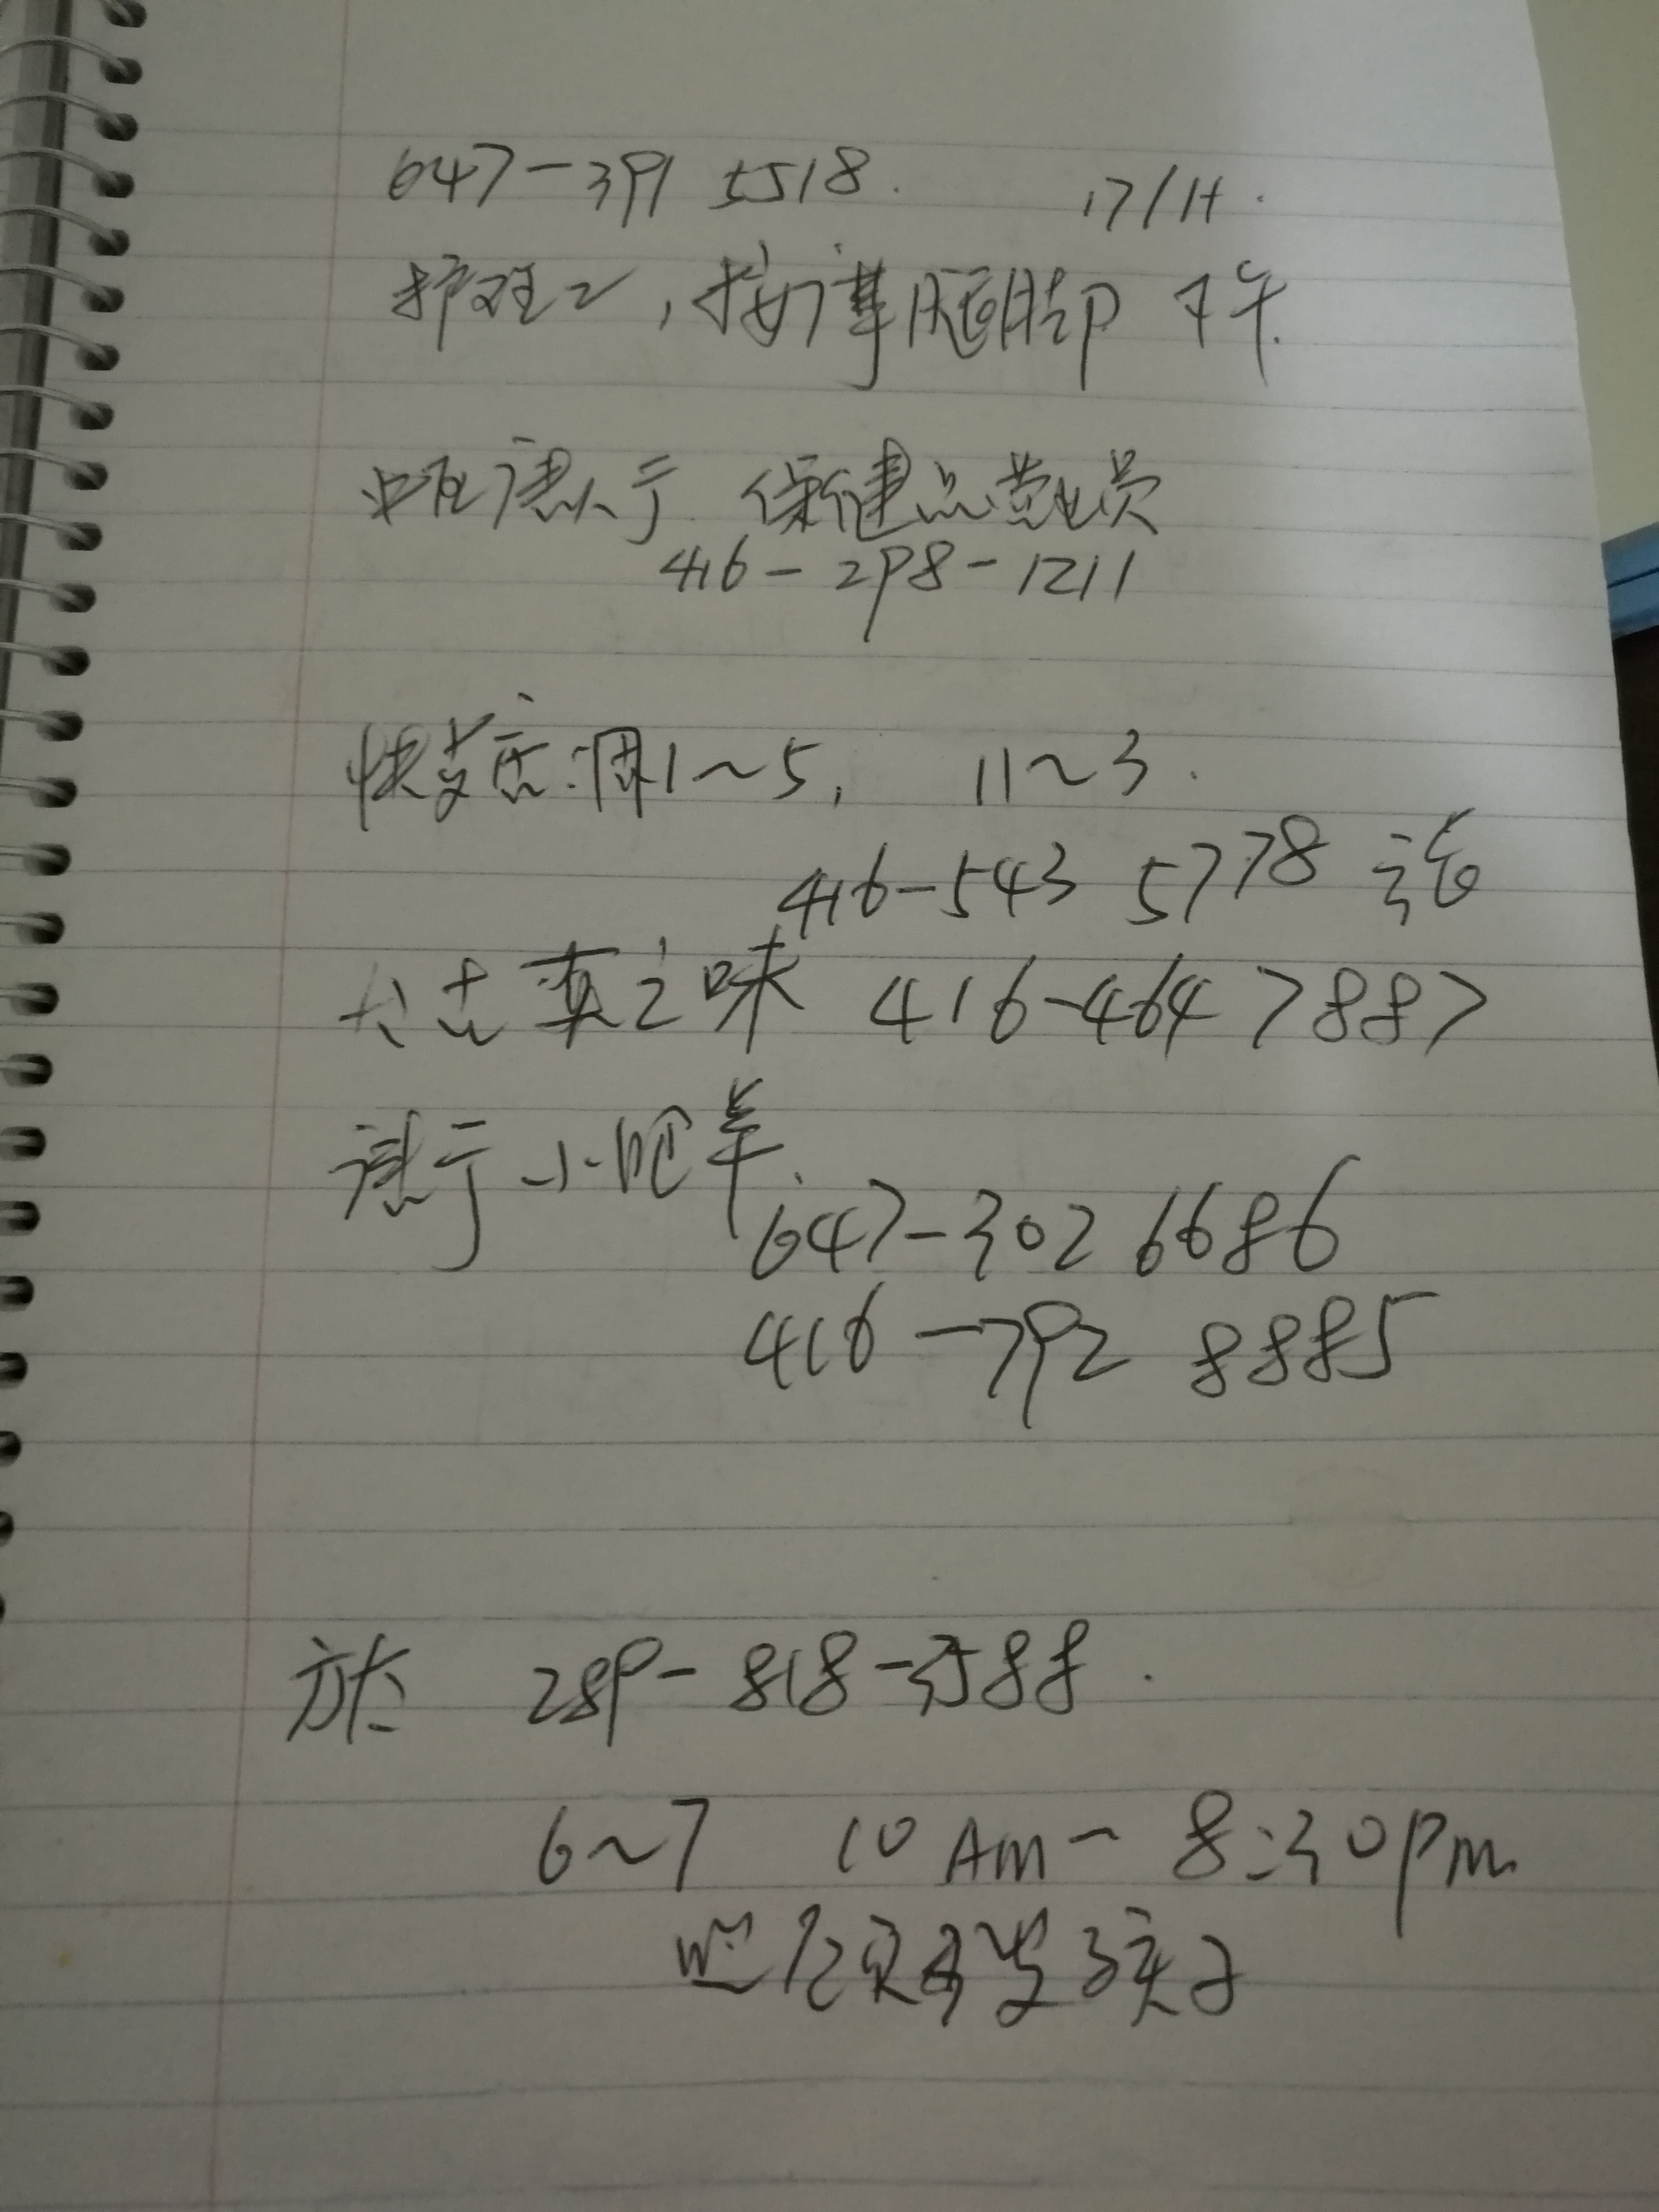 647-391 5518. 17/H.
护理工,按摩腿脚 下午.
中旺唐人于 保健品营业员
416-298-1211
快餐店:周1~5, 11~3.
416-543 5778
大古真之味 416-464 7887
惠于小肥羊.
647-302 6686
416-792 8885
289-818-3588.
6~7 10 AM~8:30pm